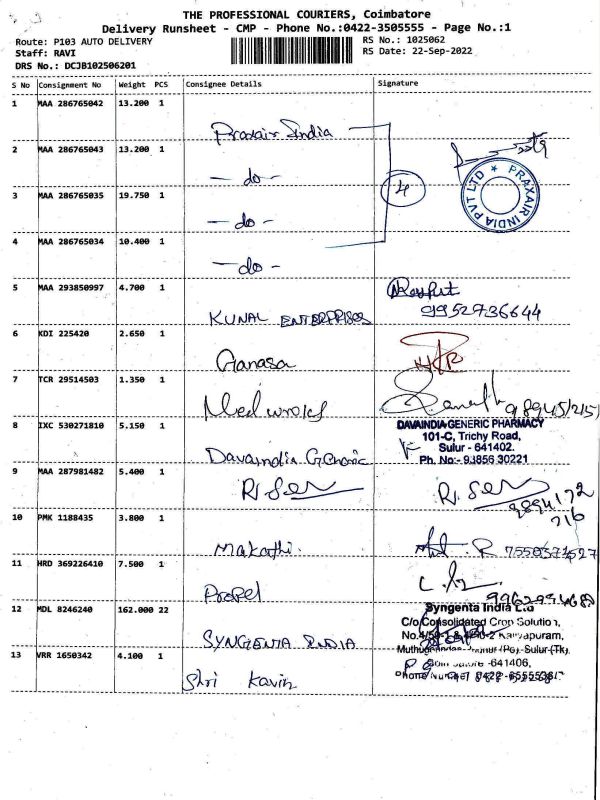 THE PROFESSIONAL COURIERS, Coimbatore
Delivery Runsheet - CMP - Phone No.:0422-3505555 - Page No.:1
Route: P103 AUTO DELIVERY RS No.: 1025062
Staff: RAVI RS Date: 22-Sep-2022
DRS No.: DCJB102506201
S No Consignment No Weight PCS Consignee Details Signature
1 MAA 286765042 13.200 1
Praxair India
2 MAA 286765043 13.200 1
- do -
PRAXAIR INDIA PVT LTD *
3 MAA 286765035 19.750 1
4
- do -
4 MAA 286765034 10.400 1
- do -
5 MAA 293850997 4.700 1
KUNAL ENTERPRISES 9952736644
6 KDI 225420 2.650 1
Ganasa
7 TCR 29514503 1.350 1
8 IXC 530271810 5.150 1 DAVAINDIA GENERIC PHARMACY
101-C, Trichy Road,
Sulur - 641402.
Davaindia Generic Ph. No:- 93856 30221
9 MAA 287981482 5.400 1
R. Sen R. Sen
9894172
716
10 PMK 1188435 3.800 1
Makathi.
11 HRD 369226410 7.500 1
Propel
12 MDL 8246240 162.000 22 Syngenta India Ltd
C/o Consolidated Crop Solution,
SYNGENTA INDIA
13 VRR 1650342 4.100 1
Shri Kavin
641406,